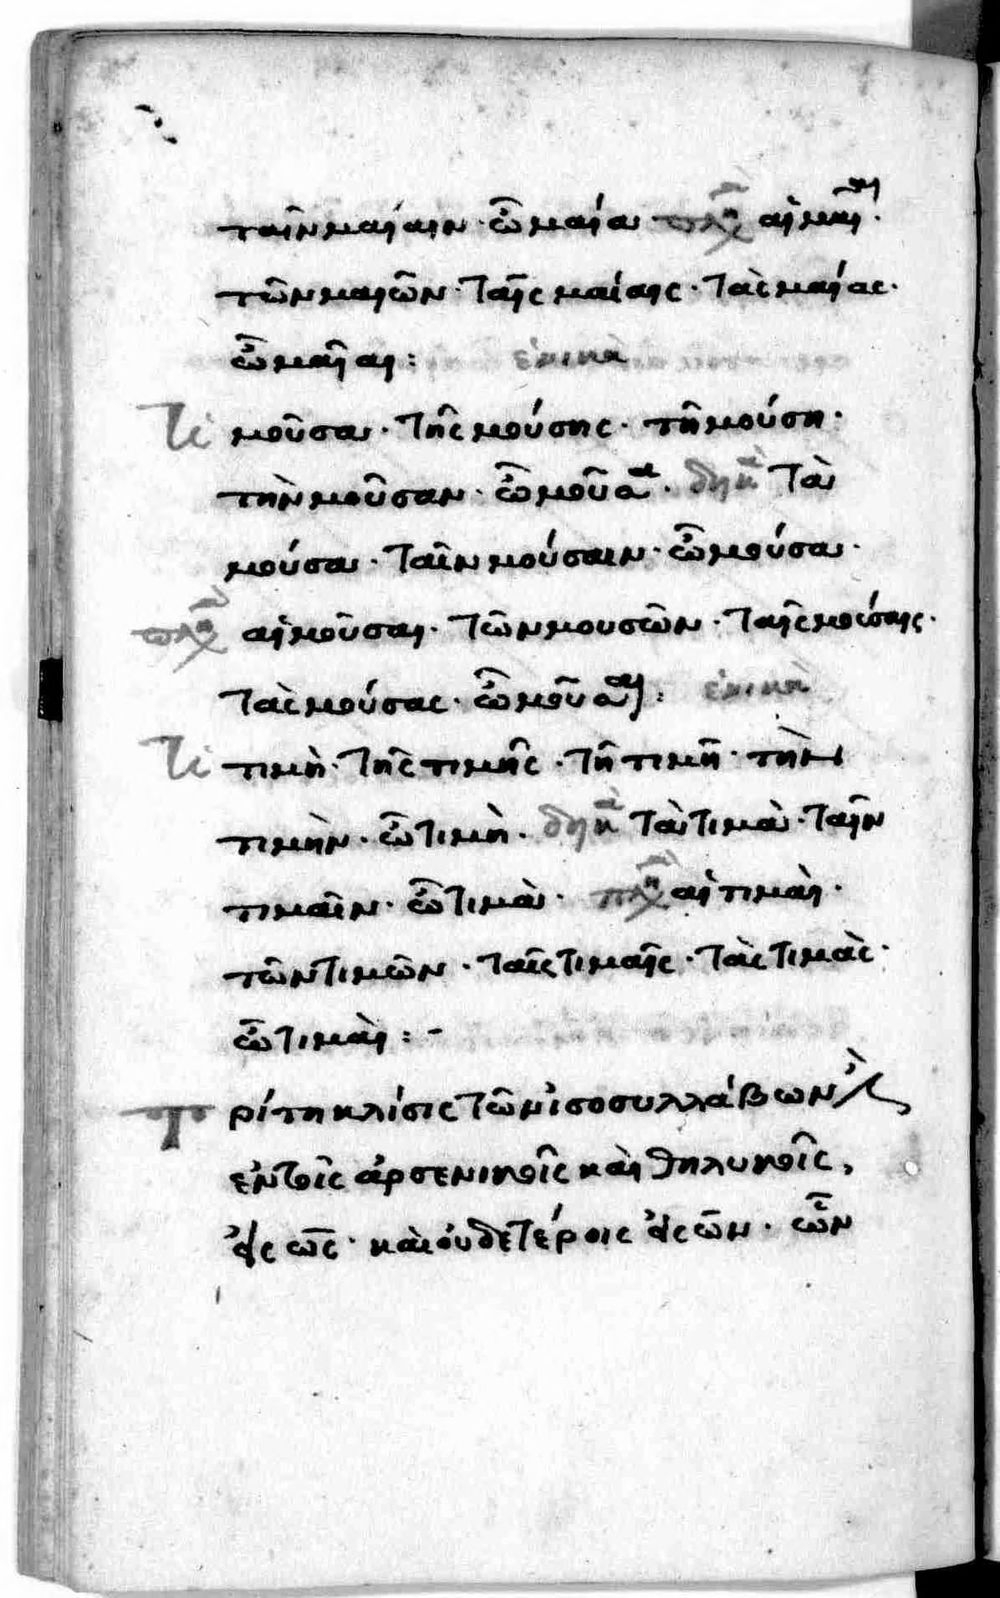 ταῖν μαίαιν · ὦ μαία πληθ αἱ μαῖαι ·
τῶν μαιῶν · ταῖς μαίαις · τὰς μαίας ·
ὦ μαῖαι : ἑνικὰ
μοῦσα · τῆς μούσης · τῇ μούσῃ ·
τὴν μοῦσαν · ὦ μοῦσα · δυϊκὰ τὰ
μούσα · ταῖν μούσαιν · ὦ μούσα ·
πληθ αἱ μοῦσαι · τῶν μουσῶν · ταῖς μούσαις ·
τὰς μούσας · ὦ μοῦσαι : ἑνικὰ
τιμὴ · τῆς τιμῆς · τῇ τιμῇ · τὴν
τιμὴν · ὦ τιμὴ · δυϊκὰ τὰ τιμὰ · ταῖν
τιμαῖν · ὦ τιμὰ · πληθ αἱ τιμαὶ ·
τῶν τιμῶν · ταῖς τιμαῖς · τὰς τιμὰς ·
ὦ τιμαὶ : -
Τρίτη κλίσις τῶν ἰσοσυλλάβων
ἐν τοῖς ἀρσενικοῖς καὶ θηλυκοῖς,
εἰς ως · καὶ οὐδετέροις εἰς ων · ὧν